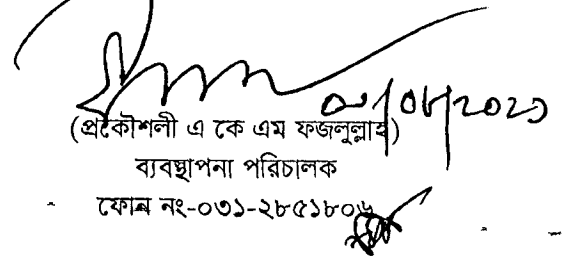 (প্রকৌশলী এ কে এম ফজলুল্লাহ)
ব্যবস্থাপনা পরিচালক
ফোন নং-০৩১-২৮৫১৮০৬